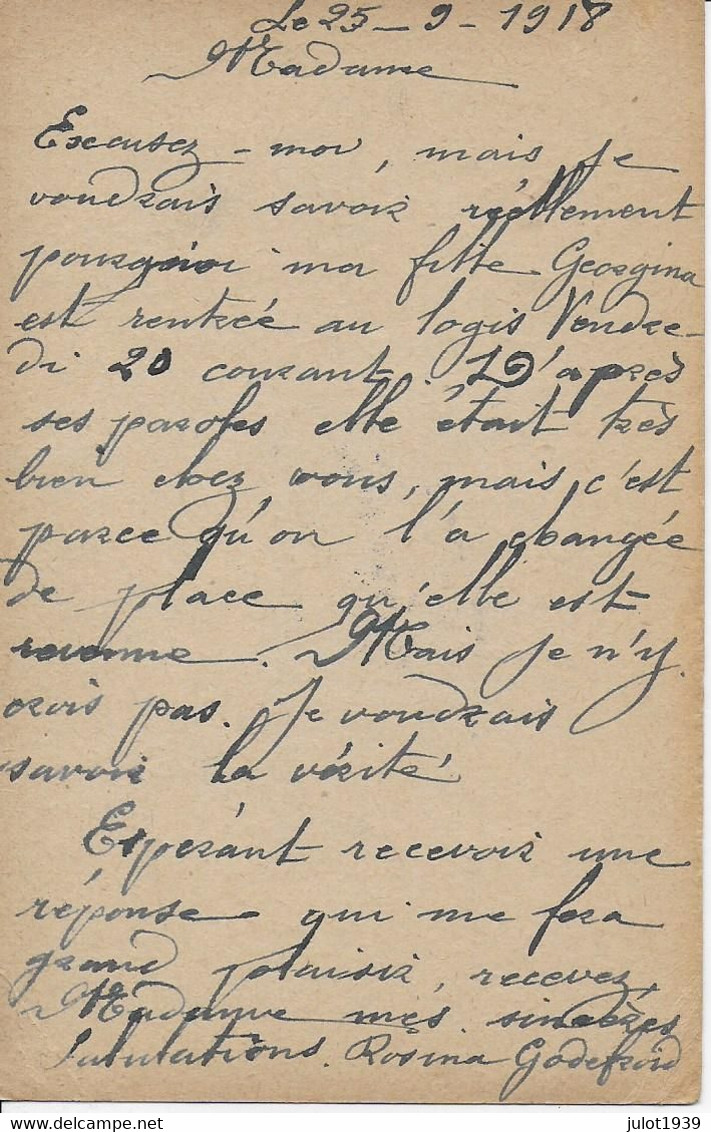 Le 25 - 9 - 1918
Madame
Excusez - moi, mais je
voudrais savoir réellement
pourquoi ma fille Georgina
est rentrée au logis Vendre-
di 20 courant. D'après
ses paroles elle était très
bien chez vous, mais c'est
parce qu'on l'a changée
de place qu'elle est
revenue. Mais je n'y
crois pas. Je voudrais
savoir la vérité
Esperant recevoir une
réponse qui me fera
grand plaisir, recevez,
Madame mes sincères
Salutations. Rosina Godefroid
julot1939